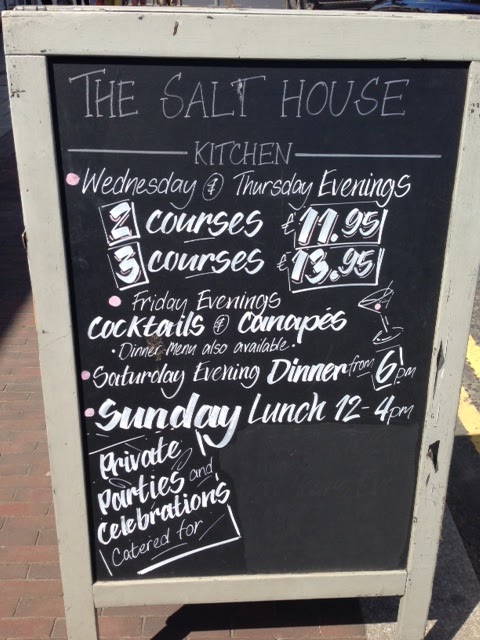 THE SALT HOUSE
KITCHEN
Wednesday & Thursday Evenings
2 courses £11.95
3 courses £13.95
Friday Evenings
Cocktails & Canapés
• Dinner Menu also available •
Saturday Evening Dinner from 6pm
Sunday Lunch 12-4pm
Private
Parties and
Celebrations
Catered for